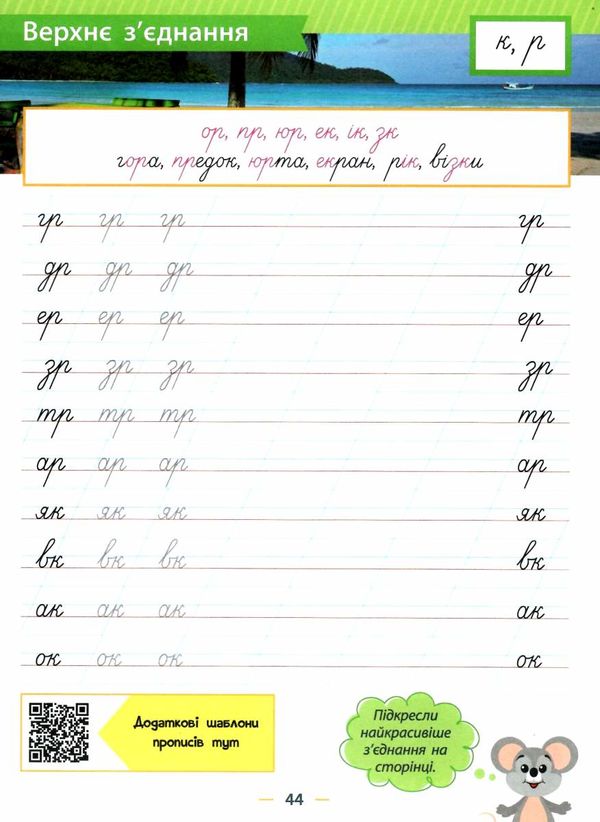 Верхнє з’єднання
к, р
ор, пр, юр, ек, ік, зк
гора, предок, юрта, екран, рік, візки
гр гр гр гр
др др др др
ер ер ер ер
зр зр зр зр
тр тр тр тр
ар ар ар ар
як як як як
вк вк вк вк
ак ак ак ак
ок ок ок ок
Додаткові шаблони
прописів тут
Підкресли
найкрасивіше
з’єднання на
сторінці.
44